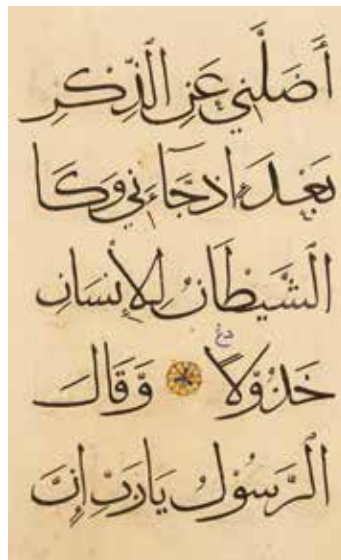 أَضَلَّنِي عَنِ الذِّكْرِ
بَعْدَ اِذ جَآءَنِي وَكَا
الشَّيْطَانُ لِلْإِنسَانِ
خَذُوْلًا وَّقَالَ
الرَّسُوْلُ يَارَبِّ إِنَّ